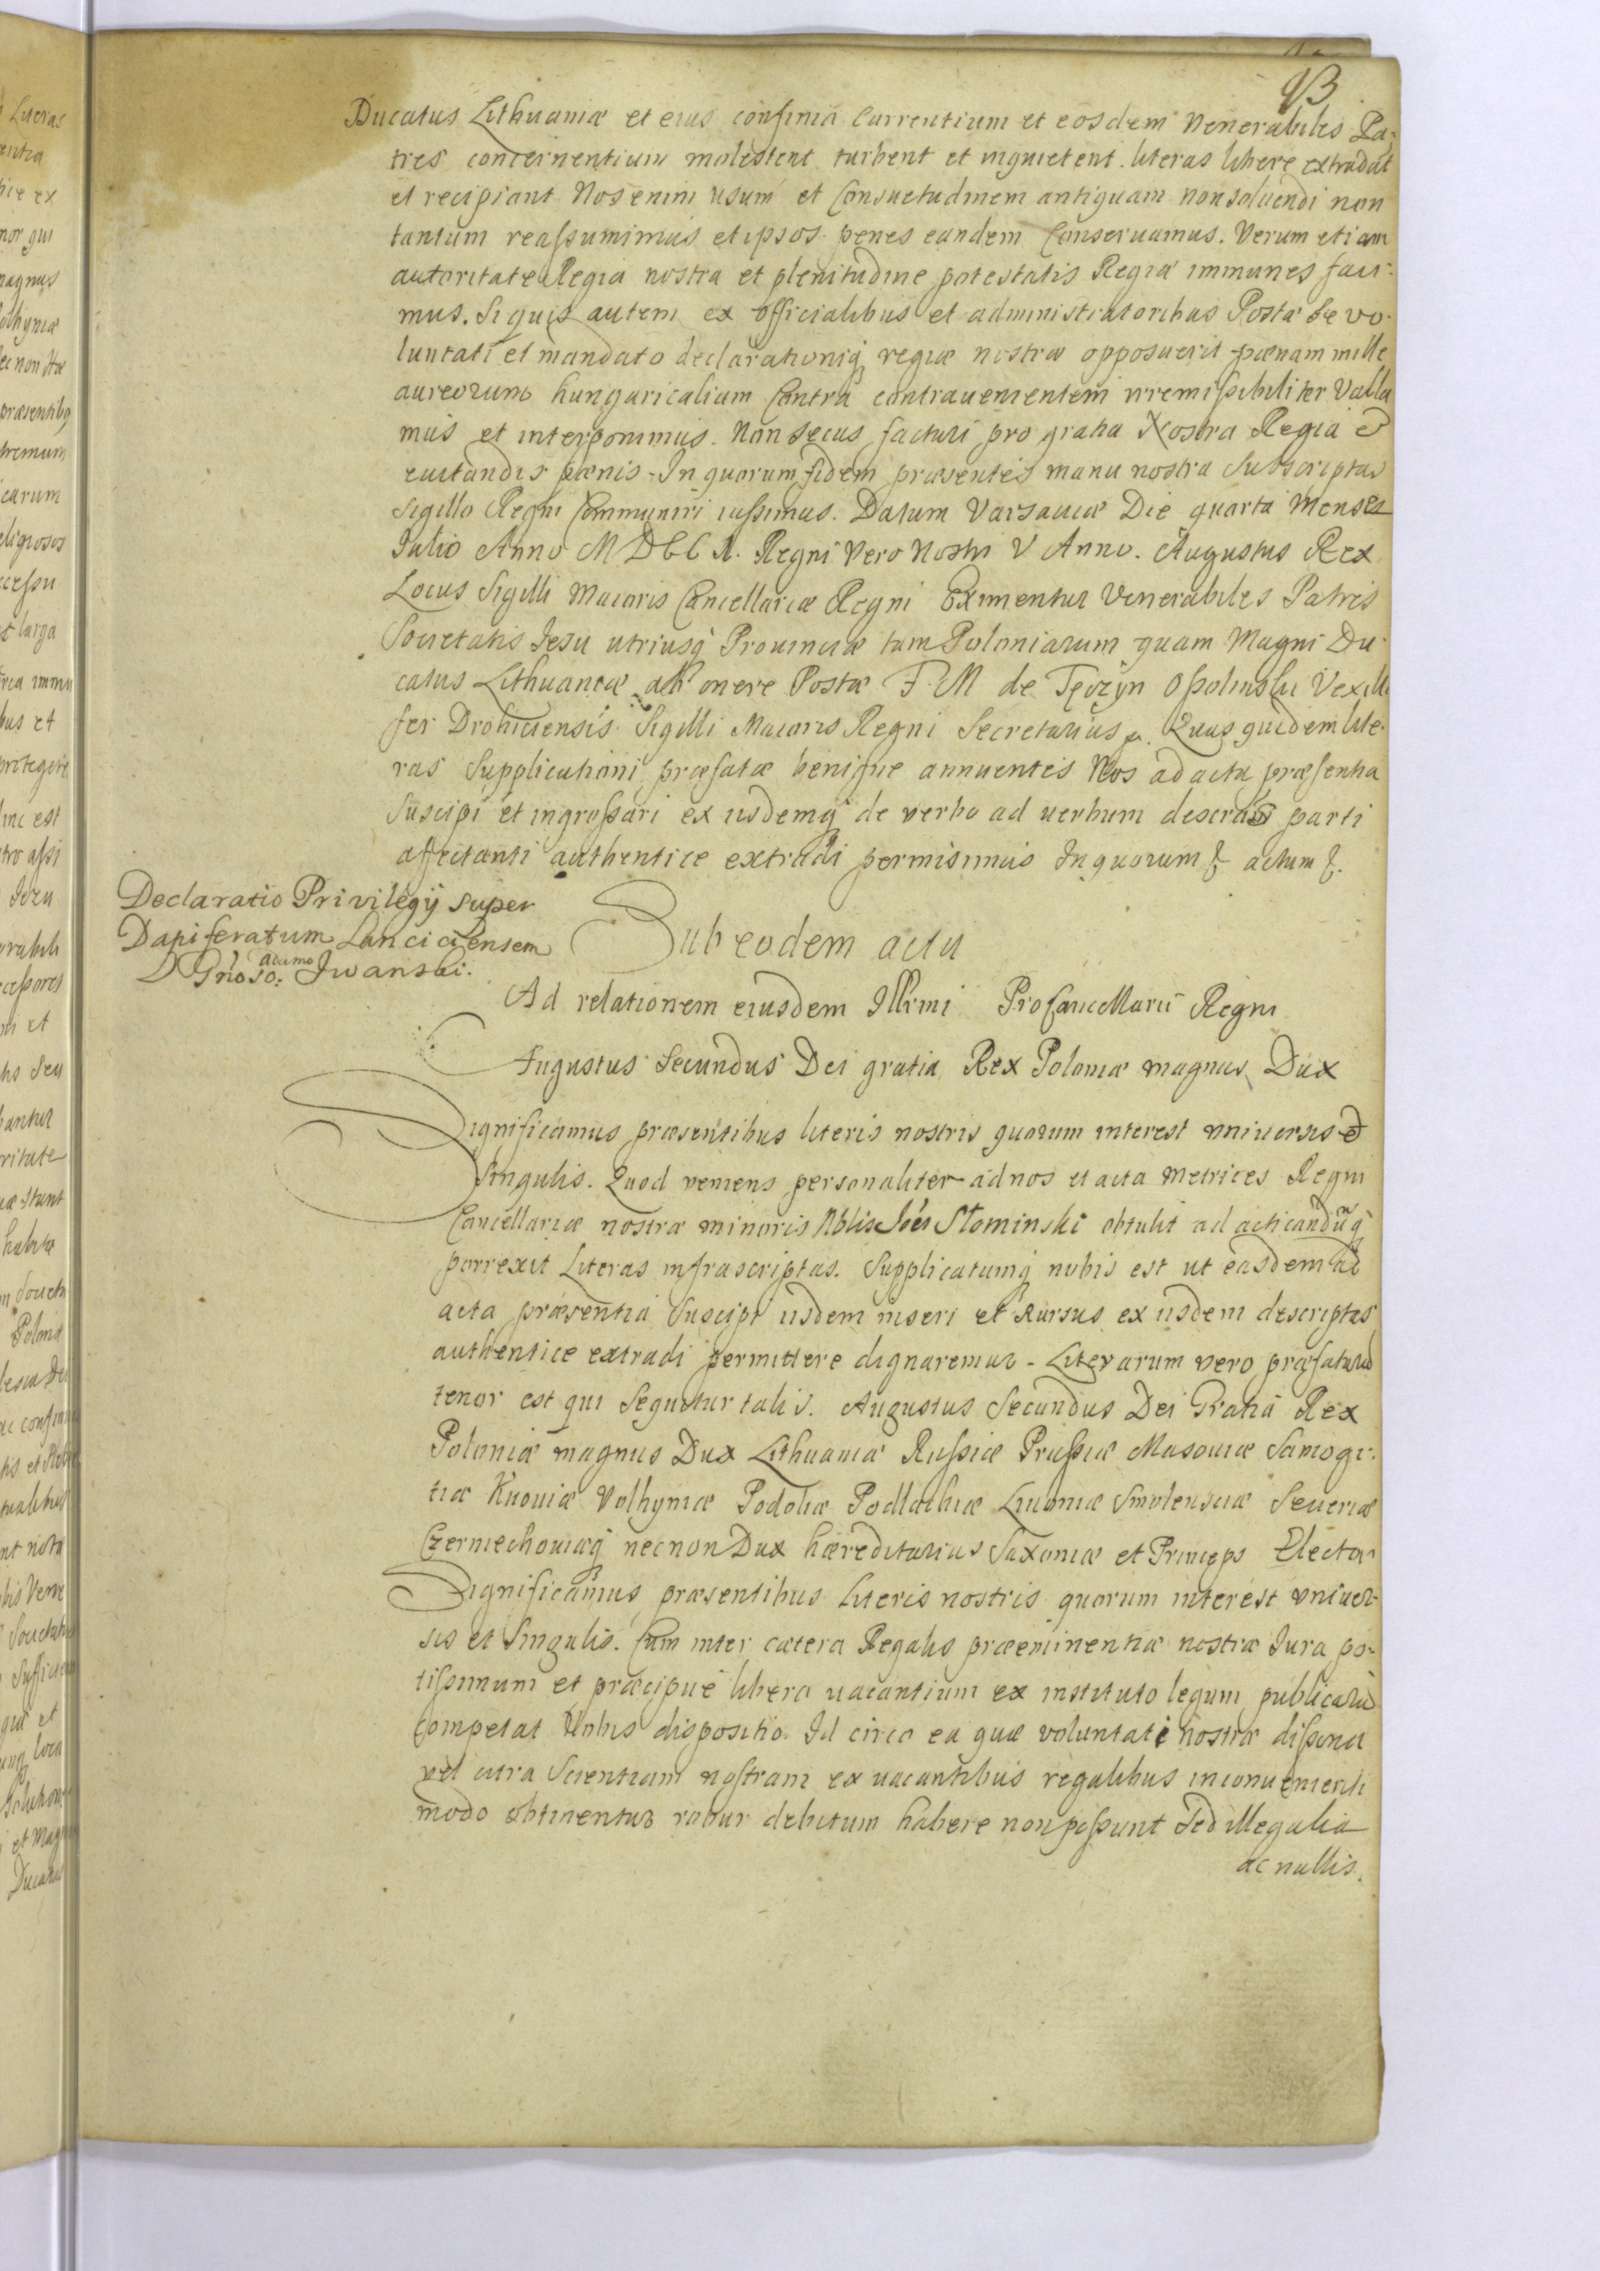 93
Ducatus Lithuaniæ et eius confinia Currentium et eosdem Venerabiles Pa-
tres concernentium molestent turbent et inquietent literas libere extradat
et recipiant Nos enim usum et Consuetudinem antiquam non soluendi non
tantum reassumimus et ipsos penes eandem Conseruamus. Verum etiam
autoritate Regia nostra et plenitudine potestatis Regiæ immunes faci-
mus. Siquis autem ex officialibus et administratoribus Postæ se vo-
luntati et mandato declarationiq regiæ nostræ opposuerit pœnam mille
aureorum hungaricalium Contra contrauenientem irremissibiliter Valla
mus et interponimus. Non secus facturi pro gratia Nostra Regia et
euitandis pœnis. In quorum fidem præsentes manu nostra Subscriptas
Sigillo Regni Communiri iussimus. Datum Varsauiæ Die quarta Menses
Julio Anno MDCCI. Regni Vero Nostri V Anno. Augustus Rex
Locus Sigilli Maioris Cancellariæ Regni Eximentur Venerabiles Patres
Societatis Jesu utriusq Prouinciæ tam Poloniarum quam Magni Du-
catus Lithuaniæ ab onere Postæ F. M de Tęczyn Opolinski Vexilli
fer Drohiciensis Sigilli Maioris Regni Secretarius Quas quidem lite-
ras Supplicationi præfatæ benigne annuentes Nos ad acta præsentia
Suscipi et ingrossari ex iisdemq de verbo ad uerbum descr parti
affectanti authentice extradi permisimus In quorum actum
Declaratio Privilegij super
Dapiferatum Lanciciensem
G͞noso: Adamo Jwanski.
Sub eodem actu
Ad relationem eiusdem Illrmi ProCancellarii Regni
Augustus Secundus Dei gratia Rex Poloniæ magnus Dux
Significamus præsentibus literis nostris quorum interest vniuersis et
Singulis. Quod veniens personaliter ad nos et acta Metrices Regni
Cancellariæ nostræ minoris Nblis Joes Słominski obtulit ad acticandūq
porrexit Literas infrascriptas. Supplicatumq nobis est ut easdem ad
acta præsentia Suscipi iisdem inseri et Rursus ex iisdem descriptas
authentice extradi permittere dignaremur. Literarum vero præfatarū
tenor est qui Sequitur talis. Augustus Secundus Dei Gratia Rex
Poloniæ magnus Dux Lithuaniæ Russiæ Prussiæ Masouiæ Samogi-
tiæ Kiiouiæ Volhyniæ Podoliæ Podlachiæ Liuoniæ Smolensciæ Seueriæ
Czerniechouiæq necnon Dux hæreditarius Saxoniæ et Princeps Elector
Significamus præsentibus Literis nostris quorum interest vniuer-
sis et Singulis. Cum inter cætera Regalis præeminentiæ nostræ Jura po-
tissimum et præcipue libera uacantium ex instituto legum publicarū
competat Nobis dispositio. Id circo ea quæ voluntati nostræ dissona
vel citra Scientiam nostram ex uacantibus regalibus inconuenienti
modo obtinentur robur debitum habere non possunt Sed illegalia
ac nullis.